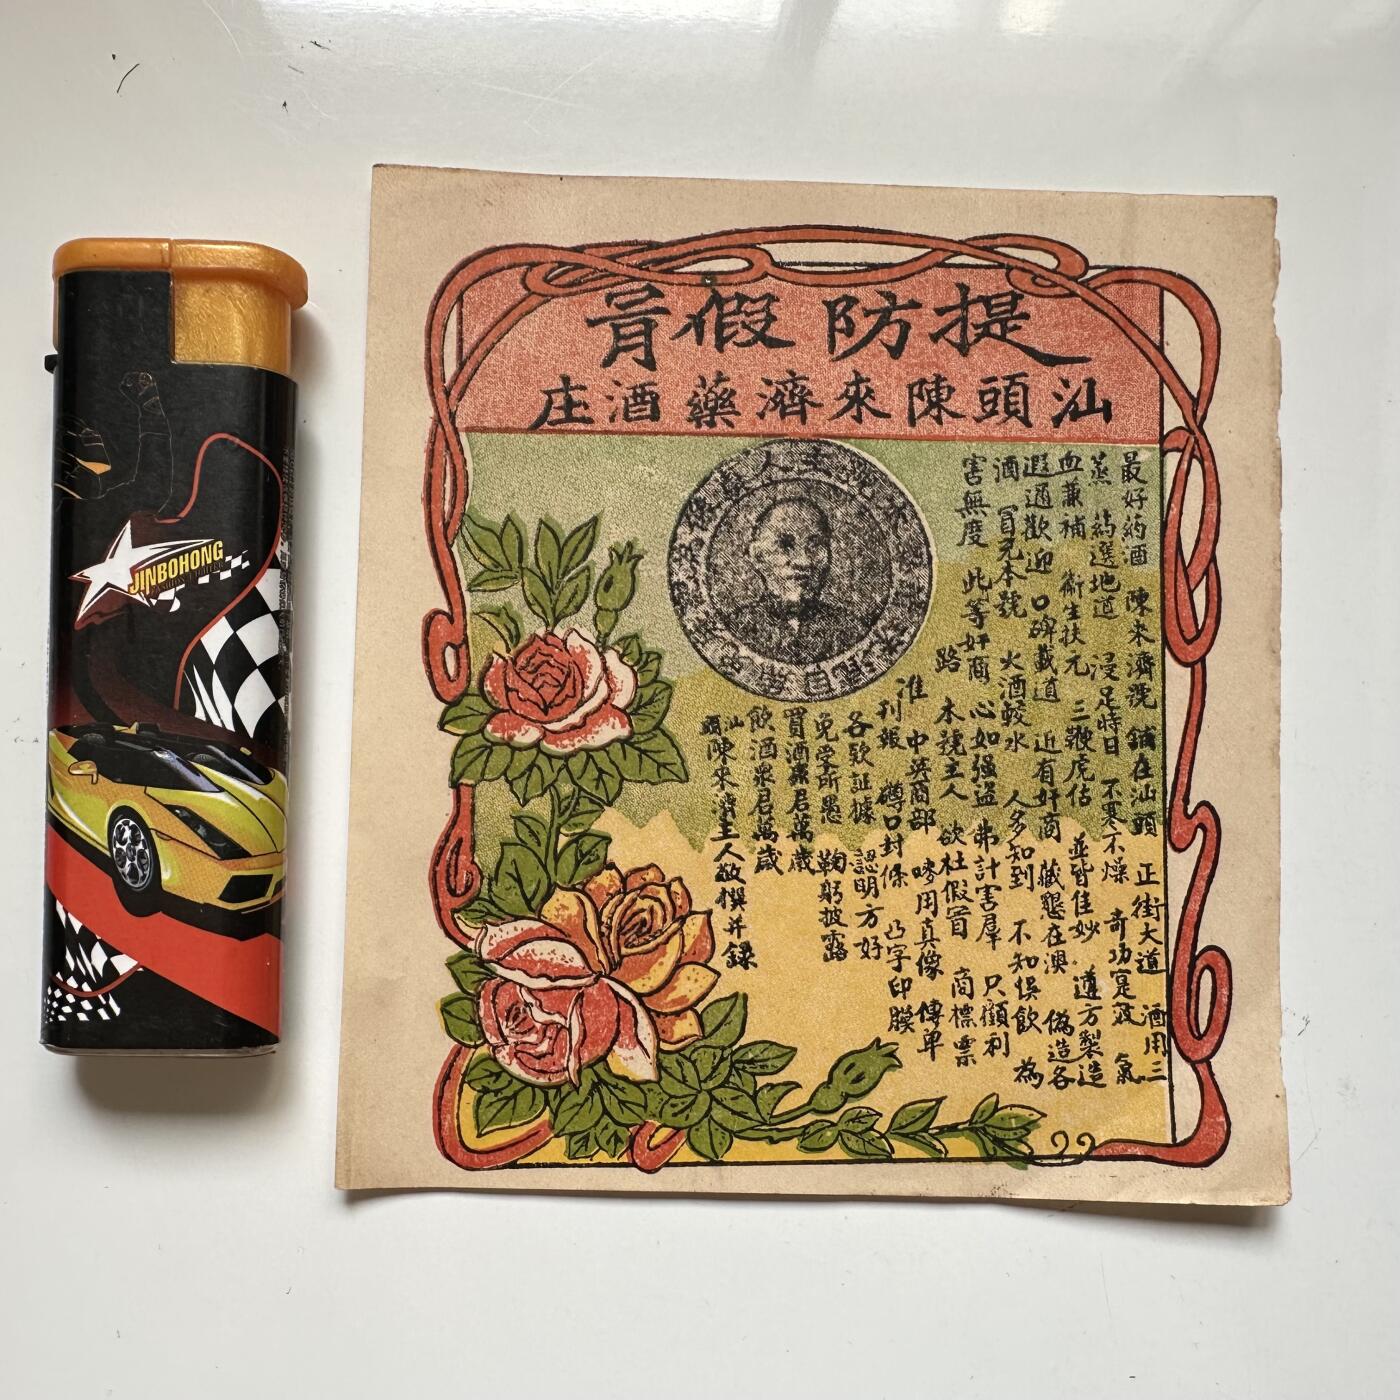 JINBOHONG
提防假冒
汕頭陳來濟藥酒庄
最好葯酒 陳來濟號 舖在汕頭 正街大道 酒用三
蒸 葯選地道 浸足時日 不寒不燥 奇功寔效 氣
血兼補 衛生扶元 三鞭虎估 並皆佳妙 遵方製造
遐邇歡迎 口碑載道 近有奸商 藏懇在澳 偽造各
酒 冒充本號 火酒鮫水 人多知到 不知悮飲 為
害無度 此等奸商 心如强盜 弗計害羣 只顧利
路 本號主人 欲杜假冒 商標票
准 中英商部 嘜用真像 傳单
刊報 罇口封條 凸字印膜
各欵証據 認明方好
免受所愚 鞠躬披露
買酒衆君萬歲
飲酒衆君萬歲
汕頭陳來濟主人敬撰并録